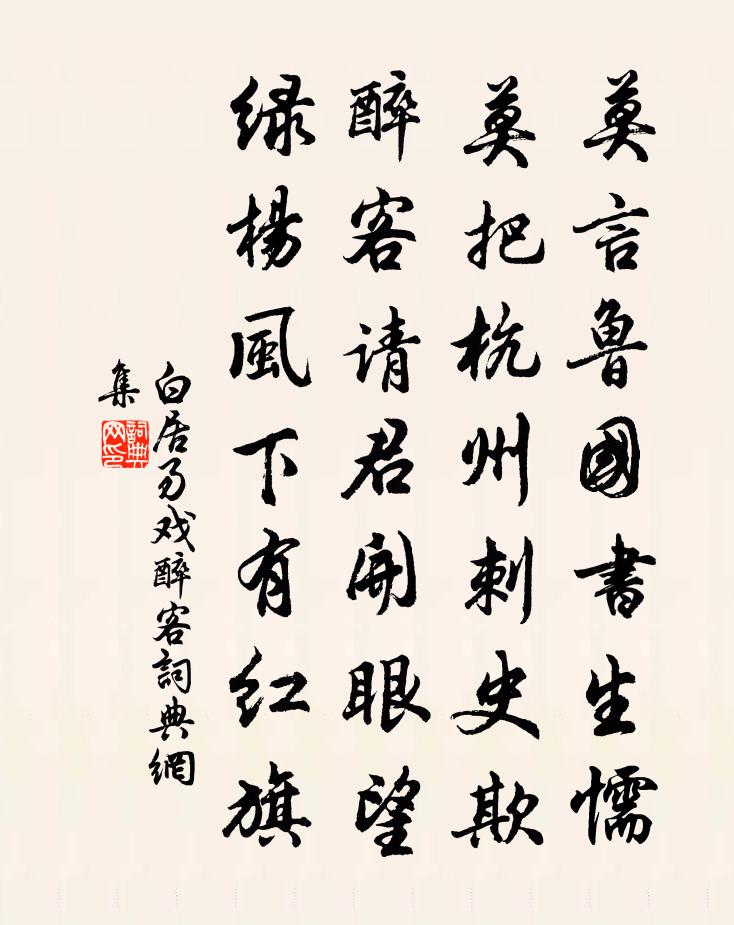 莫言魯國書生懦
莫把杭州刺史欺
醉客请君開眼望
绿楊風下有红旗
白居易戏醉客詞典網
集
詞典网印